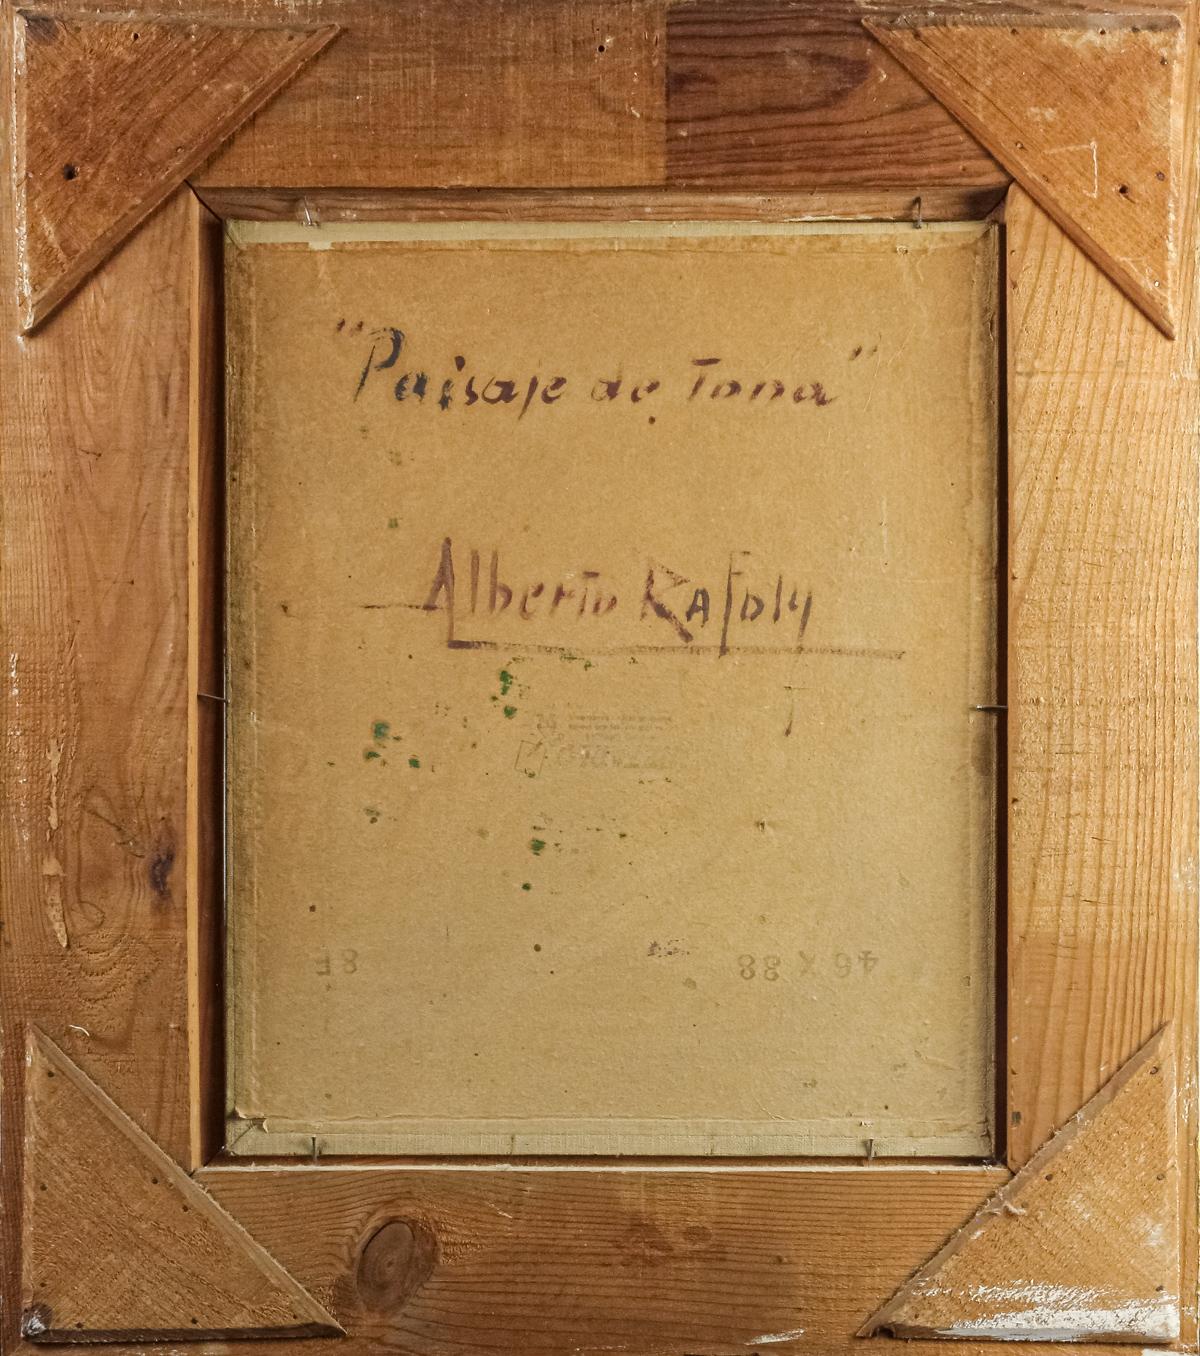 "Paisaje de Tona"
Alberto Rafoly
8F
46 X 38